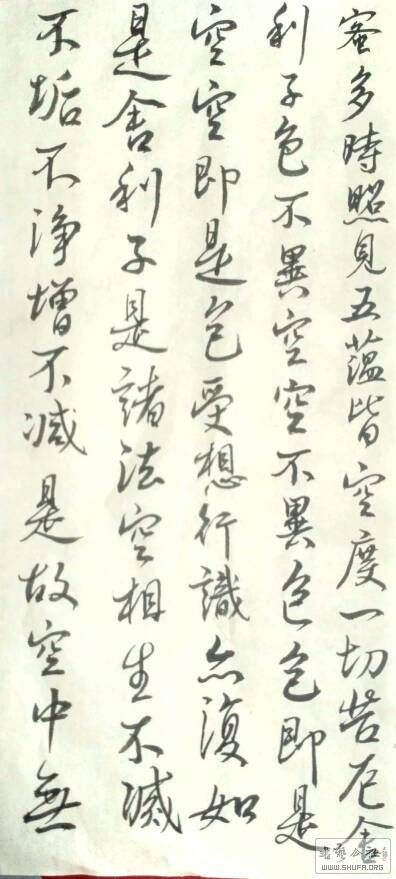 蜜多時照見五蘊皆空度一切苦厄舍
利子色不異空空不異色色即是
空空即是色受想行識亦復如
是舍利子是諸法空相生不滅
不垢不淨增不減是故空中無
WWW.SHUFA.ORG